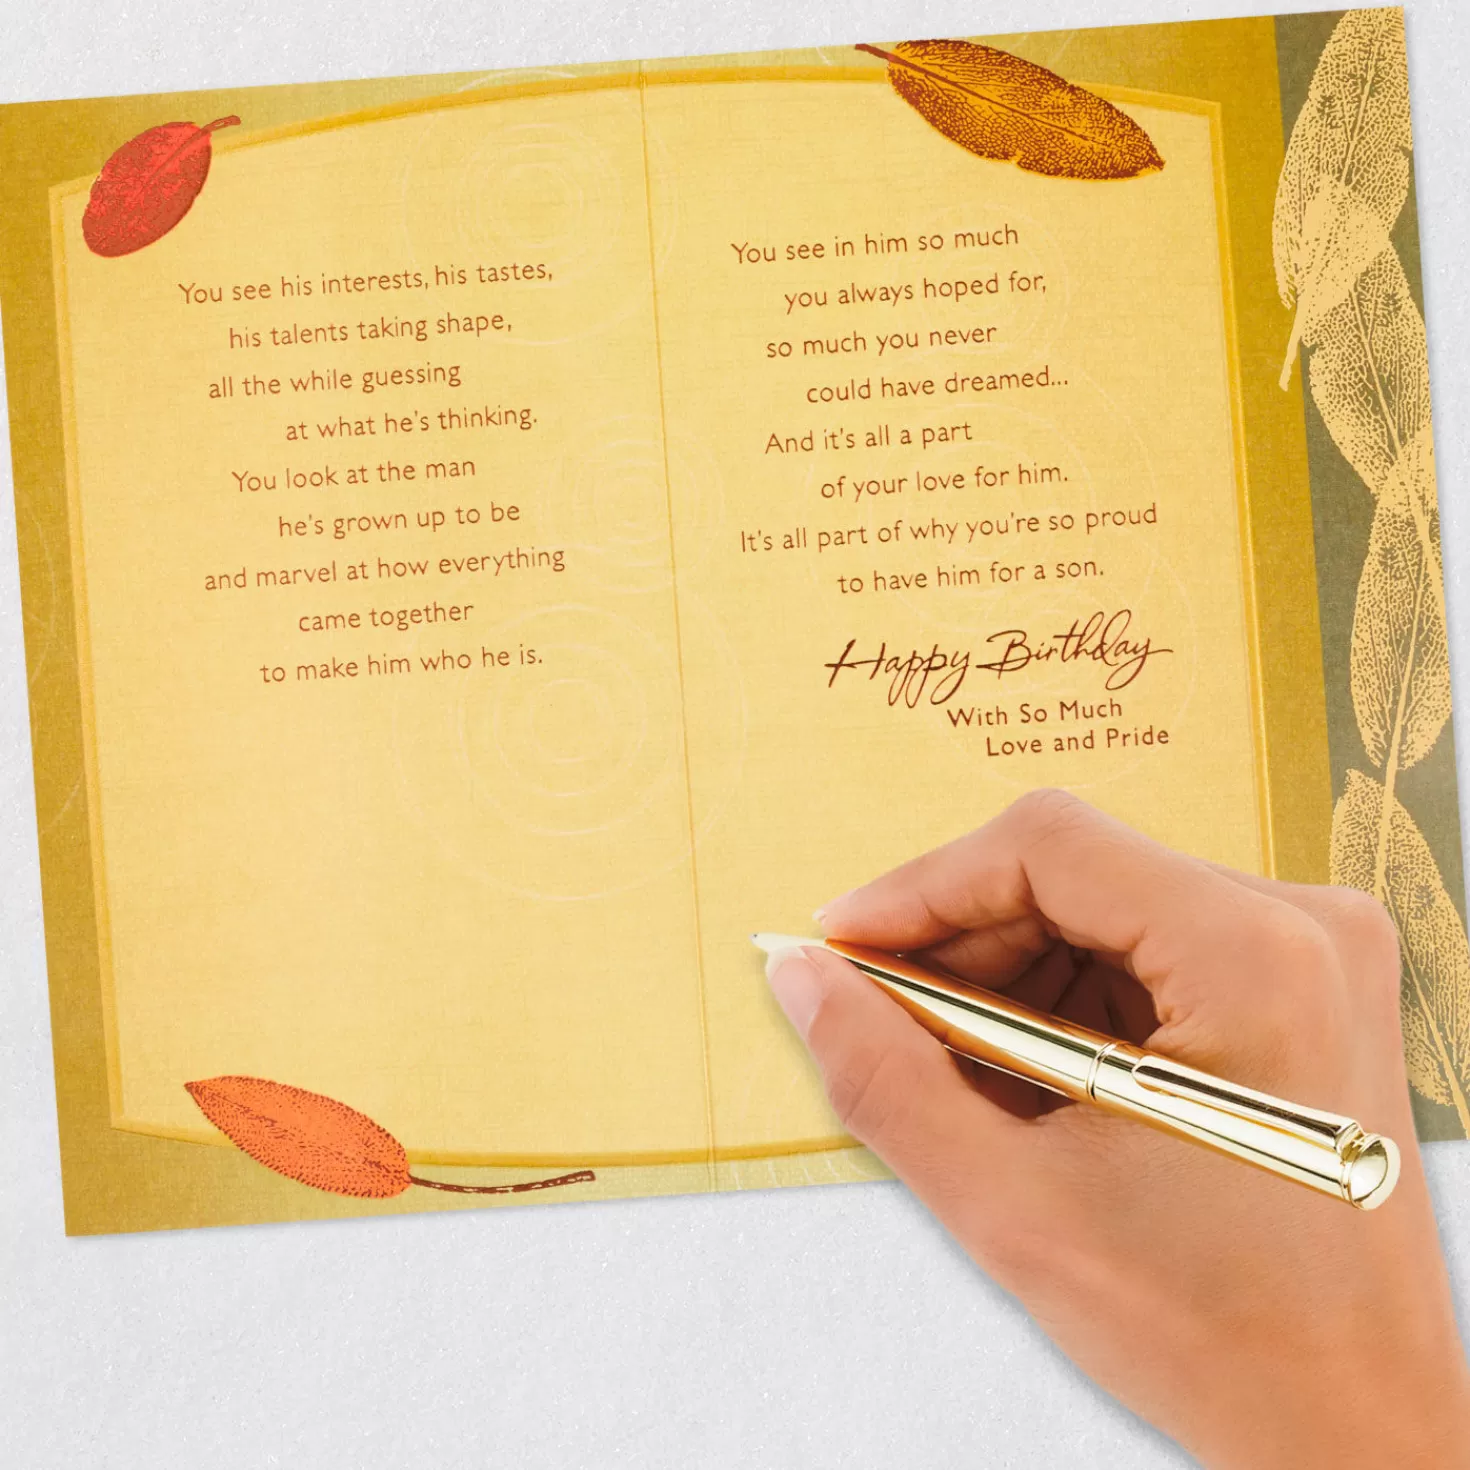 You see his interests, his tastes,
his talents taking shape,
all the while guessing
at what he's thinking.
You look at the man
he's grown up to be
and marvel at how everything
came together
to make him who he is.
You see in him so much
you always hoped for,
so much you never
could have dreamed...
And it's all a part
of your love for him.
It's all part of why you're so proud
to have him for a son.
Happy Birthday
With So Much
Love and Pride